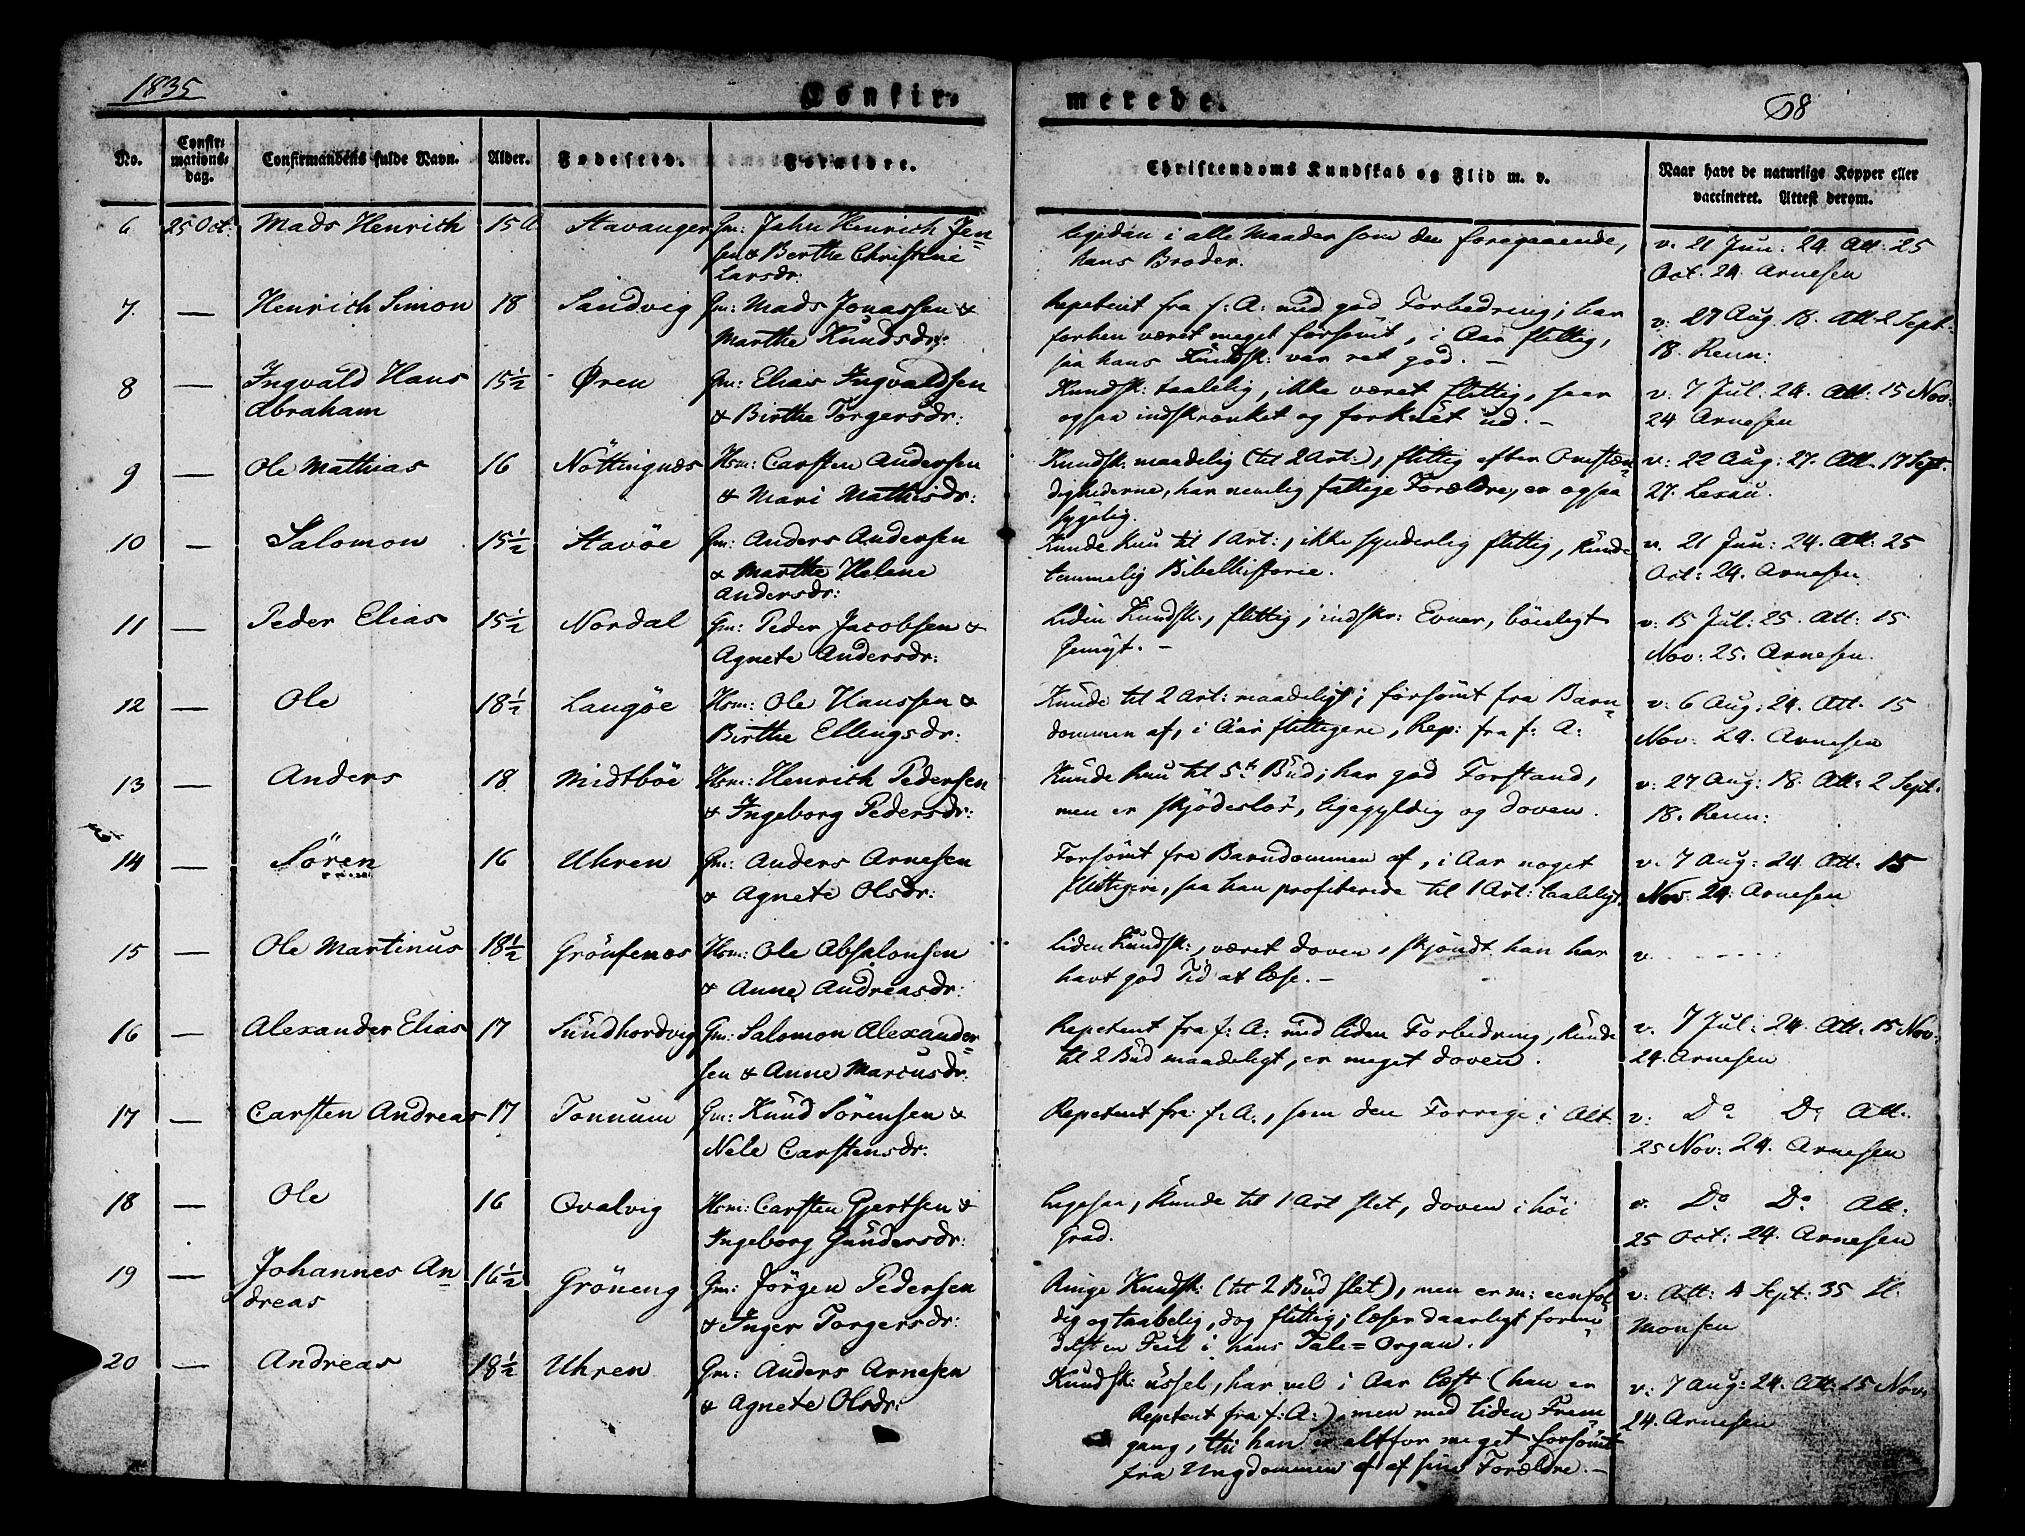 1835
Confir-
merede.
68
No.
Confir-
mations-
dag.
Confirmandens fulde Navn.
Alder.
Fødested.
Forældre.
Christendoms Kundskab og Flid m. v.
Naar havt de naturlige Kopper eller
vaccineret. Attest derom.
6 25 Oct: Mads Henrich 15 A Stavanger Gm: Jahn Henrich Jen=
sen & Berthe Christine
Larsdr:
ligedan i alle Maader som den foregaaende,
hans Broder.
v. 21 Jun: 24. Att: 25
Oct. 24. Arnesen
7. — Henrich Simon 18 Sandvig Gm: Mads Jonassen &
Marthe Knudsdr:
Repetent fra f: A: med god Forbedring; har
forhen været meget forsömt, i Aar flittig,
saa hans Kundsk: var ret god. —
v: 27 Aug. 18. Att: 2 Sept:
18. Renn:
8 — Ingvald Hans
Abraham
15½ Øren Gm: Elias Ingvaldsen
& Birthe Torgersdr:
Kundsk: taalelig, ikke været flittig, saar
ogsaa indskrænket og forknët ud. —
v. 7 Jul: 24. Att: 15 Nov:
24 Arnesen
9 — Ole Mathias 16 Nöttingnæs Hsm: Carsten Andersen
& Mari Mathisdr:
Kundsk: maadelig (til 2 Art:), flittig efter Omstæn=
dighederne, har nemlig fattige Forældre, er ogsaa
sygelig.
v: 22 Aug: 27. Att. 17 Sept:
27. Lexau.
10 — Salomon 15½ Stavöe Gm: Anders Andersen
& Marthe Helene
Andersdr:
Kunde kun til 1 Art:, ikke synderlig flittig, kunde
temmelig Bibelhistorie.
v. 21 Jun: 24. Att: 25
Oct: 24. Arnesen
11 — Peder Elias 15½ Nordal Gm: Peder Jacobsen &
Agnete Andersdr:
Liden Kundsk:, flittig, indskr: Evner, böieligt
Gemyt. —
v: 15 Jul: 25. Att: 15
Nov: 25. Arnesen.
12 — Ole 18½ Langöe Hsm: Ole Hanssen &
Birthe Ellingsdr:
Kunde til 2 Art: maadeligt; forsömt fra Barn=
dommen af, i Aar flittigere, Rep: fra f: A:
v. 6 Aug: 24. Att. 15
Nov: 24. Arnesen
13 — Anders 18 Midtböe Hsm: Henrich Pedersen
& Ingeborg Pedersdr:
Kunde kun til 5t Bud; har god Forstand,
men er skjödeslös, ligegyldig og doven.
v: 27 Aug: 18. Att: 2 Sept:
18. Renn:
14 — Sören 16 Uhren Gm: Anders Arnesen
& Agnete Olsdr:
Forsömt fra Barndommen af, i Aar noget
flittigere, saa han profiterede til 1 Art: taaleligt.
v. 7 Aug: 24. Att: 15
Nov: 24. Arnesen
15 — Ole Martinus 18½ Grönsenæs Hsm: Ole Absalonsen
& Anne Andreasdr:
Liden Kundsk:, været doven, skjöndt han har
havt god Tid at læse. —
v. - - - - - -
16 — Alexander Elias 17 Sundhordvig Gm: Salomon Alexander=
sen & Anne Marcusdr:
Repetent fra f: A: med liden Forbedring, kunde
til 2 Bud maadeligt, er meget doven.
v. 7 Jul: 24. Att. 15 Nov:
24. Arnesen
17 — Carsten Andreas 17 Tonnum Gm: Knud Sörensen &
Nele Carstensdr:
Repetent fra f: A:, som den Forrige i Alt.
v: Do Do Att.
25 Nov: 24. Arnesen
18 — Ole 16 Qvalvig Hsm: Carsten Gjertsen &
Ingeborg Gundersdr:
Ligesaa, kunde til 1 Art slet, doven i höi
Grad.
v. Do Do Att.
25 Oct: 24. Arnesen
19 — Johannes An=
dreas
16½ Gröneng Gm: Jörgen Pedersen
& Inger Torgersdr:
Ringe Kundsk: (til 2 Bud slet), men er m: eenfol=
dig og taabelig, dog flittig; læser daarligt forme=
delst en Feil i hans Tale=Organ.
v: Att: 4 Sept: 35 H.
Monsen
20 — Andreas 18½ Uhren Gm: Anders Arnesen
& Agnete Olsdr:
Kundsk: ussel, har vel i Aar læst (han er
Repetent fra f: A:), men med liden Frem
gang, thi han er altfor meget forsömt
fra Ungdommen af af sine Forældre. —
v: 7 Aug: 24. Att: 15 Nov:
24. Arnesen